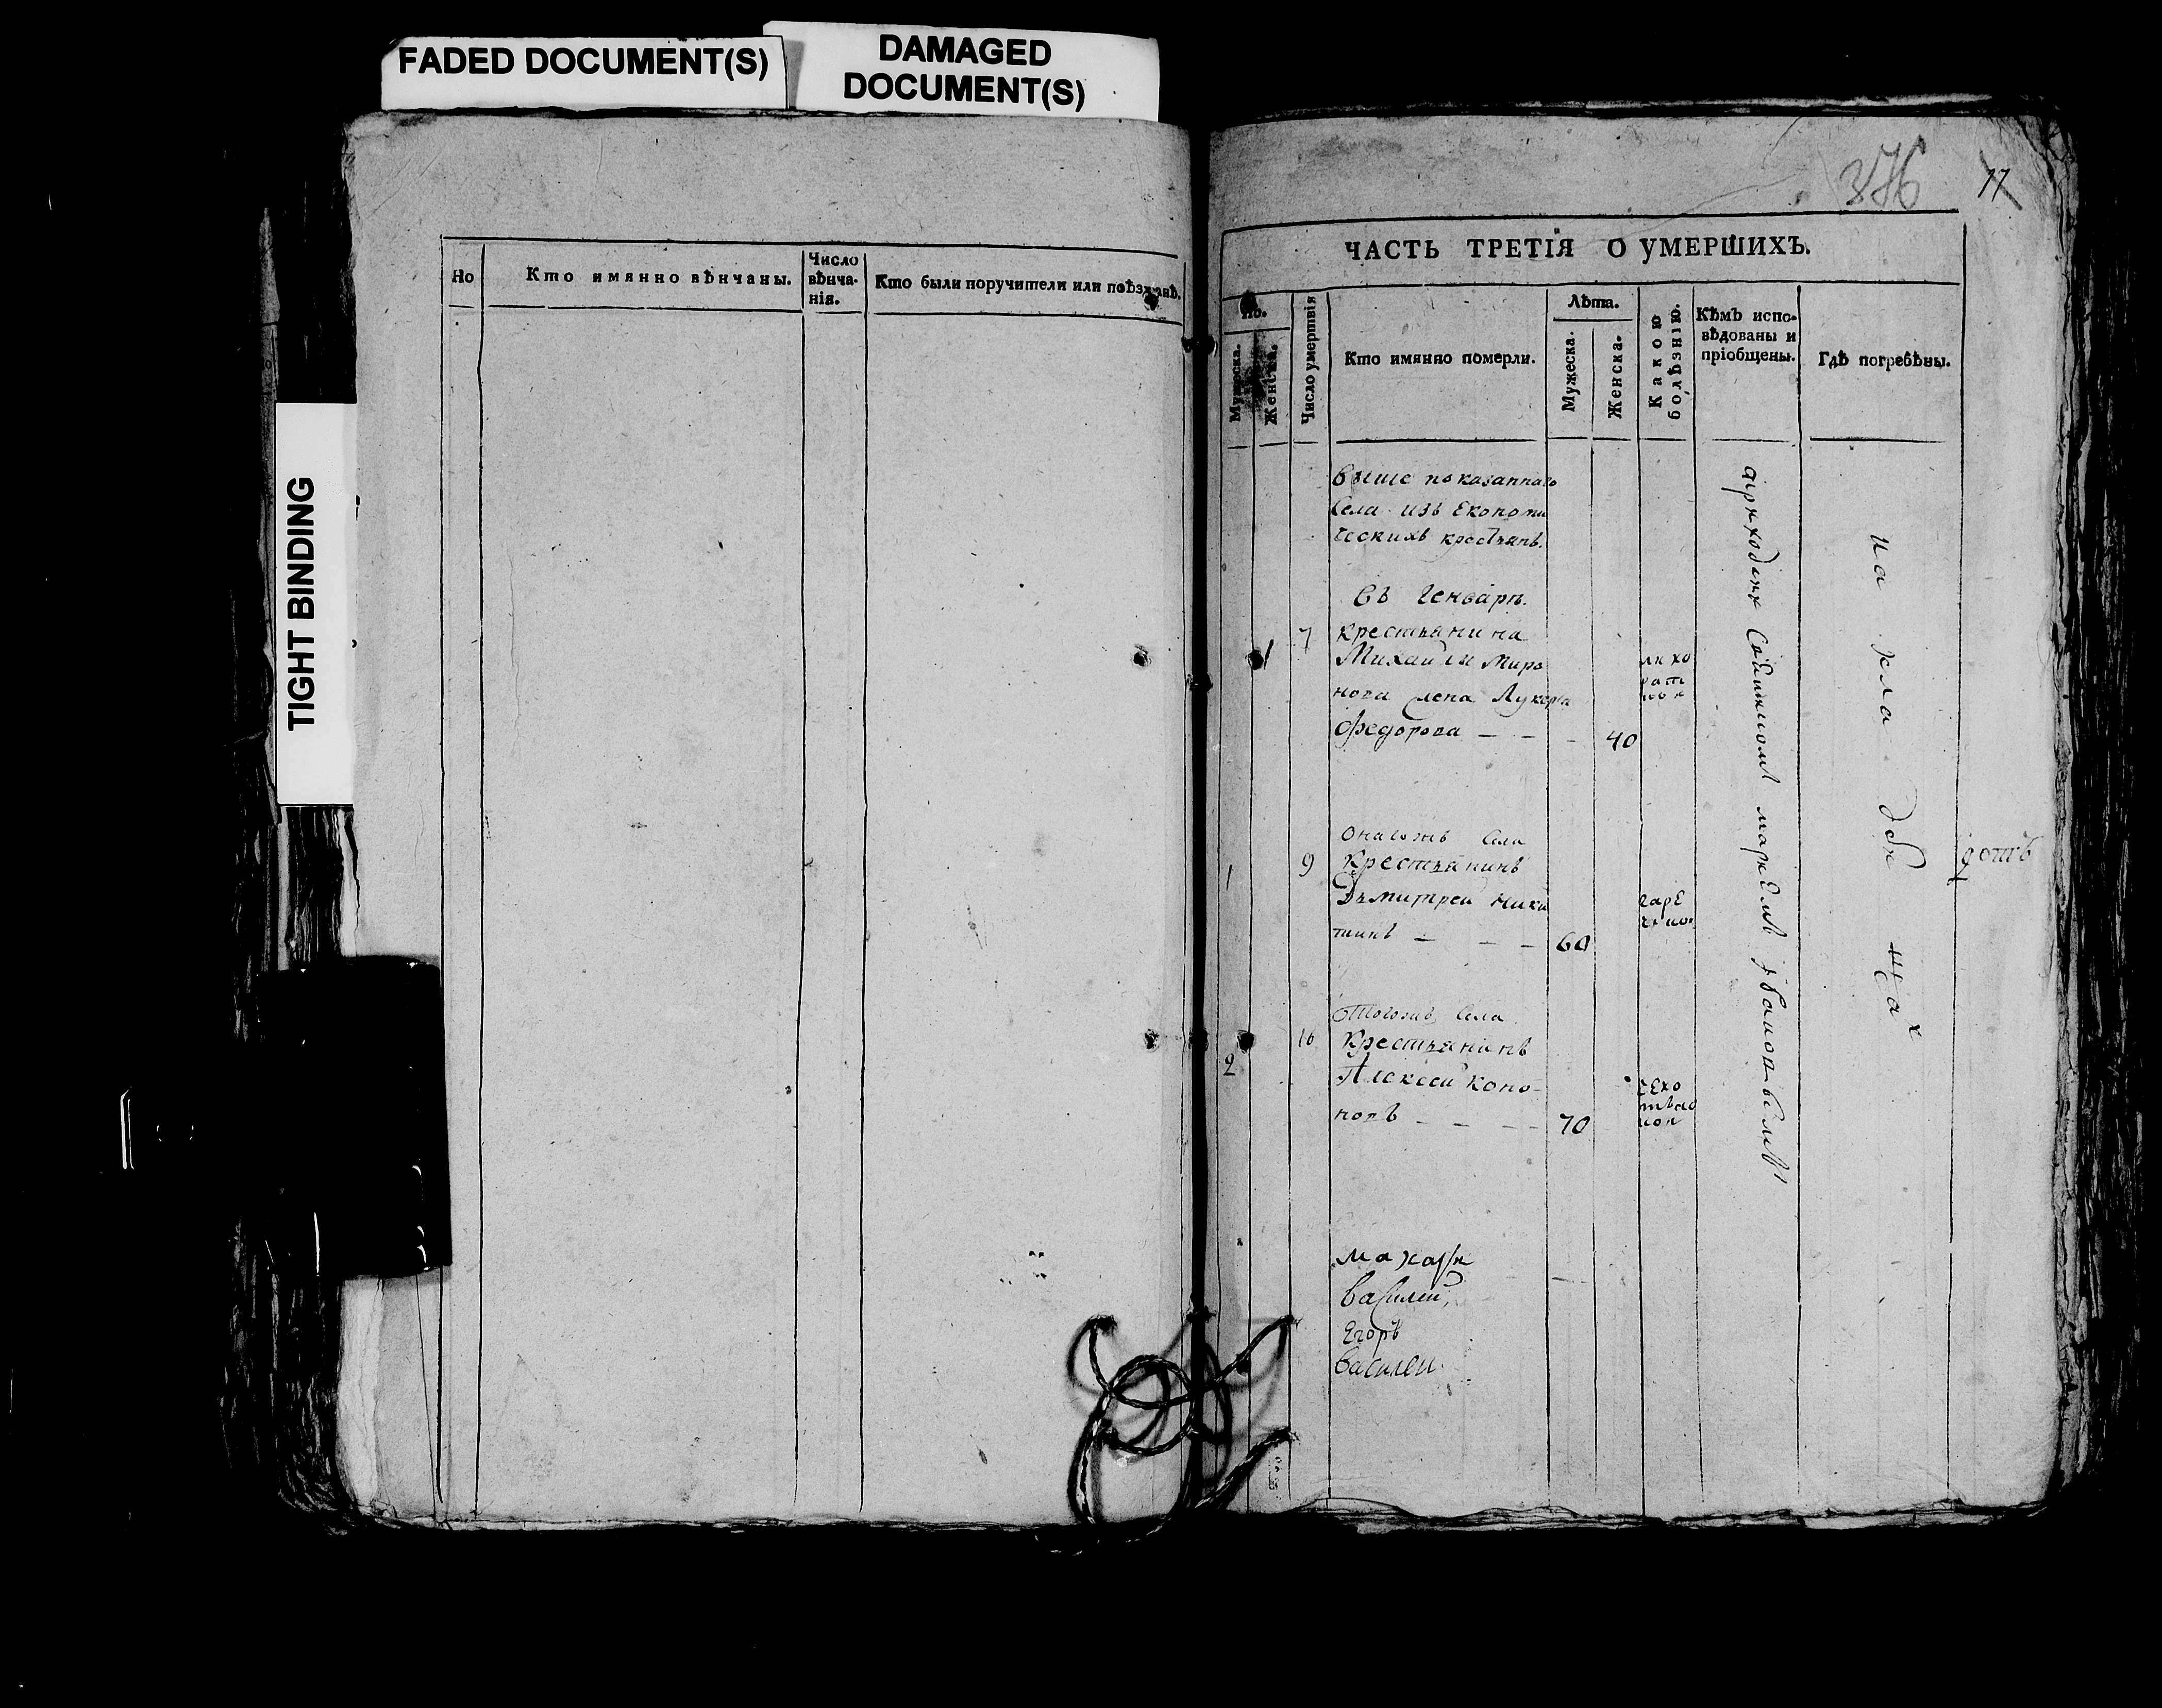 FADED DOCUMENT(S)
DAMAGED
DOCUMENT(S)
TIGHT BINDING
Но
Кто имянно вѣнчаны.
Число
вѣнча-
нія.
Кто были поручители или поѣзжанѣ.
376
77
ЧАСТЬ ТРЕТІЯ О УМЕРШИХЪ.
Но.
Мужеска.
Женска.
Число умертвія
Кто имянно померли.
Лѣта.
Мужеска.
Женска.
Какою
болѣзнію.
Кѣмъ испо-
вѣдованы и
пріобщены.
Гдѣ погребѣны.
выше показаннаго
села изъ Економи
ческихъ крестьянъ.
въ Генварѣ.
1
7
крестьянина
Михайла Миро
нова жена Лукерья
Федорова — — — 40
лихо
рат
кои
онагожъ села
1
9
крестьянинъ
Дъмитреи Ники
тинъ — — — 60
тогожъ села
2
16
крестьянинъ
Алексеи Коно-
новъ — — — 70
приходски
на кладбищах
макари
василеи
Егоръ
василеи